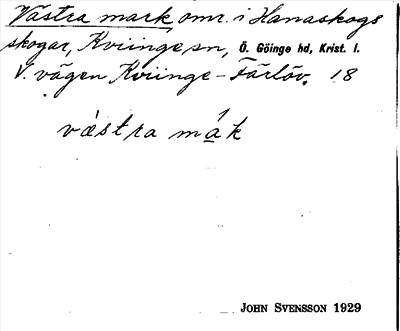 Västra mark omr. i Hanaskogs
skogar, Kviinge sn, Ö. Göinge hd, Krist. l.
V. vägen Kviinge - Färlöv. 18
væ̀stra má̱k
JOHN SVENSSON 1929